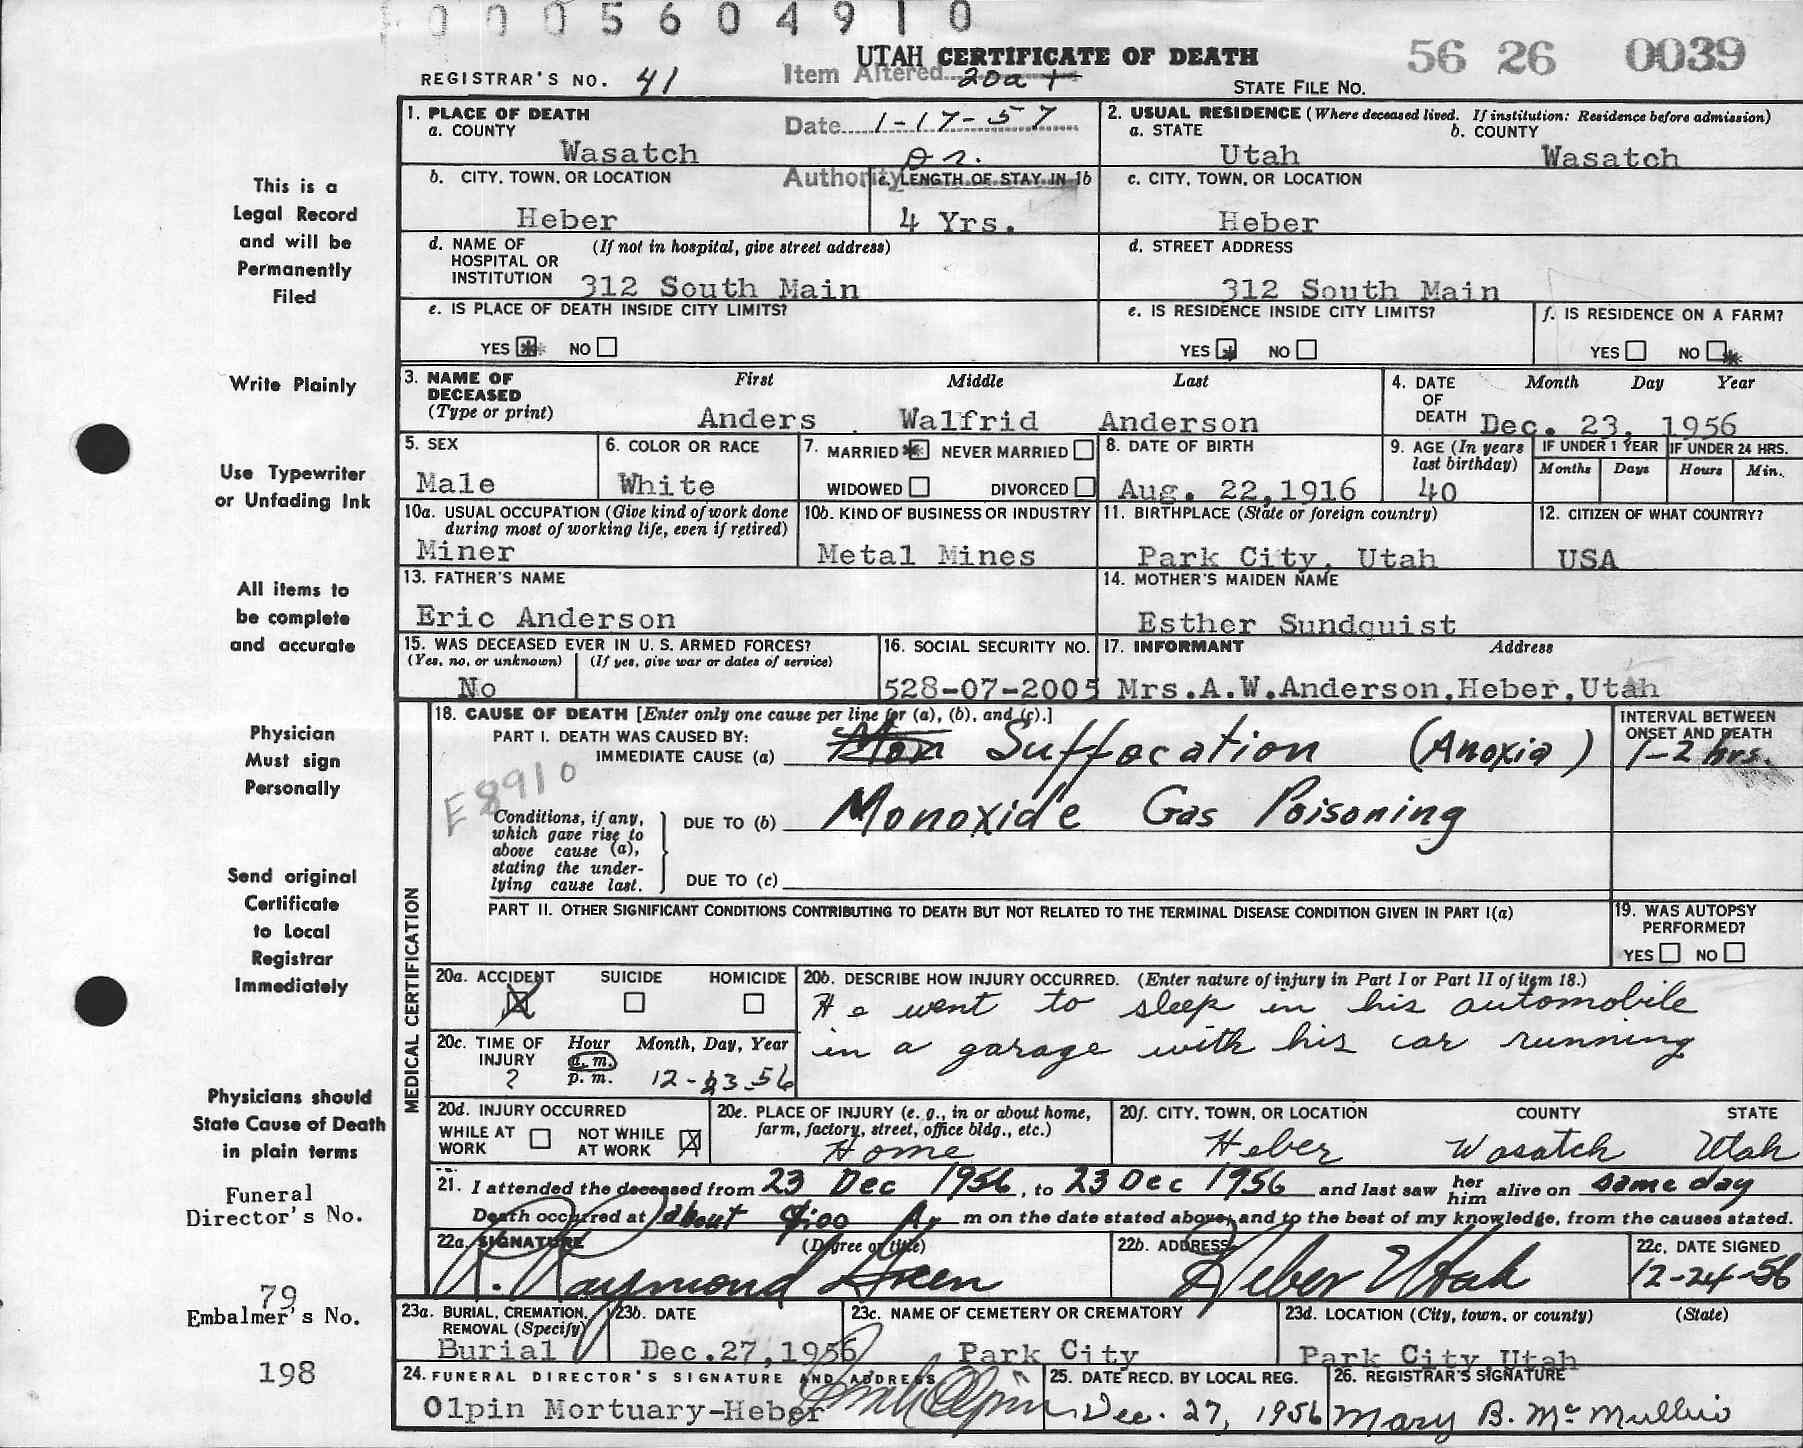 0005604910
UTAH CERTIFICATE OF DEATH
56 26 0039
REGISTRAR'S NO. 41
Item Altered 20a +
STATE FILE NO.
1. PLACE OF DEATH
a. COUNTY
Wasatch
Date 1-17-57
2. USUAL RESIDENCE (Where deceased lived. If institution: Residence before admission)
a. STATE b. COUNTY
Utah Wasatch
This is a
Legal Record
and will be
Permanently
Filed
b. CITY, TOWN, OR LOCATION
Heber
Authority Dr.
c. LENGTH OF STAY IN 1b
4 Yrs.
c. CITY, TOWN, OR LOCATION
Heber
d. NAME OF (If not in hospital, give street address)
HOSPITAL OR
INSTITUTION 312 South Main
d. STREET ADDRESS
312 South Main
e. IS PLACE OF DEATH INSIDE CITY LIMITS?
YES NO
e. IS RESIDENCE INSIDE CITY LIMITS?
YES NO
f. IS RESIDENCE ON A FARM?
YES NO
Write Plainly
3. NAME OF DECEASED (Type or print)
First Middle Last
Anders Walfrid Anderson
4. DATE OF DEATH
Month Day Year
Dec. 23, 1956
Use Typewriter
or Unfading Ink
5. SEX
Male
6. COLOR OR RACE
White
7. MARRIED NEVER MARRIED
WIDOWED DIVORCED
8. DATE OF BIRTH
Aug. 22,1916
9. AGE (In years last birthday)
40
IF UNDER 1 YEAR
Months Days
IF UNDER 24 HRS.
Hours Min.
10a. USUAL OCCUPATION (Give kind of work done
during most of working life, even if retired)
Miner
10b. KIND OF BUSINESS OR INDUSTRY
Metal Mines
11. BIRTHPLACE (State or foreign country)
Park City, Utah
12. CITIZEN OF WHAT COUNTRY?
USA
All items to
be complete
and accurate
13. FATHER'S NAME
Eric Anderson
14. MOTHER'S MAIDEN NAME
Esther Sundquist
15. WAS DECEASED EVER IN U. S. ARMED FORCES?
(Yes, no, or unknown) (If yes, give war or dates of service)
No
16. SOCIAL SECURITY NO.
528-07-2005
17. INFORMANT Address
Mrs.A.W.Anderson,Heber,Utah
Physician
Must sign
Personally
MEDICAL CERTIFICATION
18. CAUSE OF DEATH [Enter only one cause per line for (a), (b), and (c).]
PART I. DEATH WAS CAUSED BY:
IMMEDIATE CAUSE (a) Mon Suffocation (Anoxia)
INTERVAL BETWEEN
ONSET AND DEATH
1-2 hrs.
E8910
Conditions, if any,
which gave rise to
above cause (a),
stating the under-
lying cause last.
DUE TO (b) Monoxide Gas Poisoning
DUE TO (c)
Send original
Certificate
to Local
Registrar
Immediately
PART II. OTHER SIGNIFICANT CONDITIONS CONTRIBUTING TO DEATH BUT NOT RELATED TO THE TERMINAL DISEASE CONDITION GIVEN IN PART I(a)
19. WAS AUTOPSY
PERFORMED?
YES NO
20a. ACCIDENT SUICIDE HOMICIDE
20b. DESCRIBE HOW INJURY OCCURRED. (Enter nature of injury in Part I or Part II of item 18.)
He went to sleep in his automobile
in a garage with his car running
20c. TIME OF INJURY
Hour Month, Day, Year
? a.m. p.m. 12-23-56
Physicians should
State Cause of Death
in plain terms
20d. INJURY OCCURRED
WHILE AT WORK NOT WHILE AT WORK
20e. PLACE OF INJURY (e. g., in or about home,
farm, factory, street, office bldg., etc.)
Home
20f. CITY, TOWN, OR LOCATION COUNTY STATE
Heber Wasatch Utah
21. I attended the deceased from 23 Dec 1956, to 23 Dec 1956 and last saw her him alive on same day
Death occurred at about 4:00 A. m on the date stated above, and to the best of my knowledge, from the causes stated.
Funeral
Director's No.
79
Embalmer's No.
198
22a. SIGNATURE (Degree or title)
R. Raymond Green
22b. ADDRESS
Heber Utah
22c. DATE SIGNED
12-24-56
23a. BURIAL, CREMATION,
REMOVAL (Specify)
Burial
23b. DATE
Dec.27,1956
23c. NAME OF CEMETERY OR CREMATORY
Park City
23d. LOCATION (City, town, or county) (State)
Park City,Utah
24. FUNERAL DIRECTOR'S SIGNATURE AND ADDRESS
Olpin Mortuary-Heber
25. DATE RECD. BY LOCAL REG.
Dec. 27, 1956
26. REGISTRAR'S SIGNATURE
Mary B. McMullin